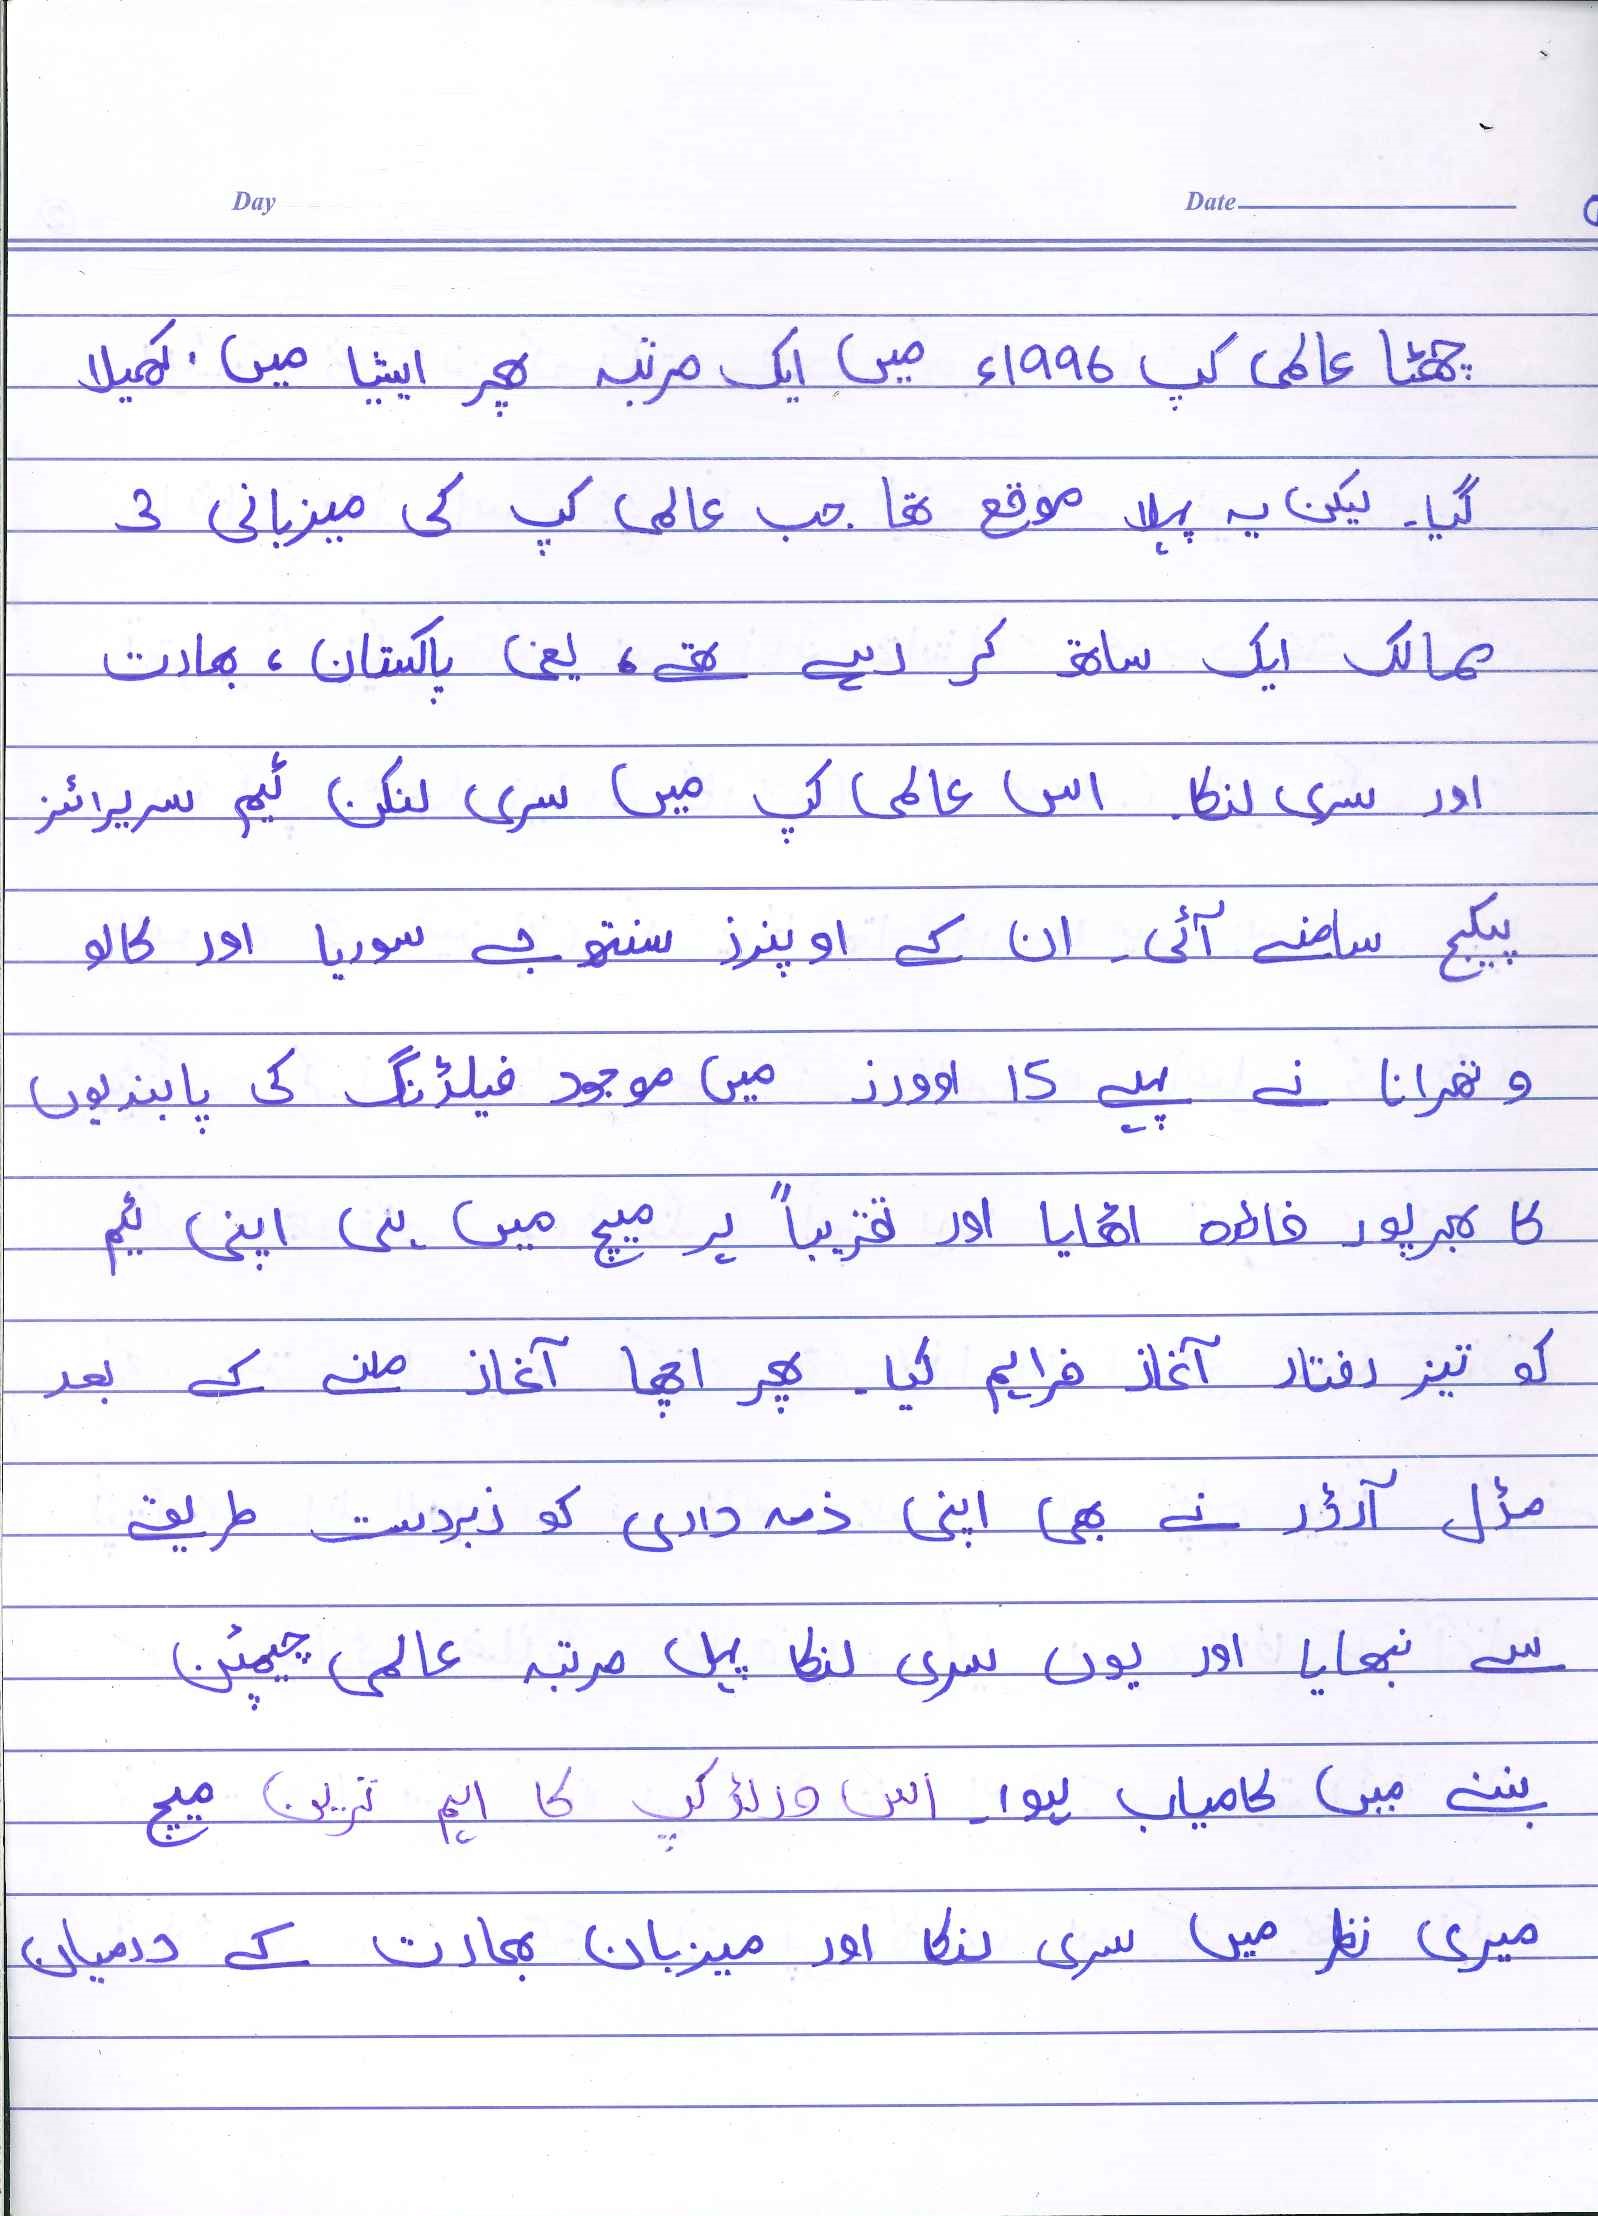 Day Date
چھٹا عالمی کپ 1996ء میں ایک مرتبہ پھر ایشیا میں کھیلا
گیا۔ لیکن یہ پہلا موقع تھا جب عالمی کپ کی میزبانی 3
ممالک ایک ساتھ کر رہے تھے، یعنی پاکستان، بھارت
اور سری لنکا۔ اس عالمی کپ میں سری لنکن ٹیم سرپرائز
پیکیج سامنے آئی۔ ان کے اوپنرز سنتھ جے سوریا اور کالو
وتھرانا نے پہلے 15 اوورز میں موجود فیلڈنگ کی پابندیوں
کا بھرپور فائدہ اٹھایا اور تقریباً ہر میچ میں ہی اپنی ٹیم
کو تیز رفتار آغاز فراہم کیا۔ پھر اچھا آغاز ملنے کے بعد
مڈل آرڈر نے بھی اپنی ذمہ داری کو زبردست طریقے
سے نبھایا اور یوں سری لنکا پہلی مرتبہ عالمی چیمپئن
بننے میں کامیاب ہوا۔ اس ورلڈ کپ کا اہم ترین میچ
میری نظر میں سری لنکا اور میزبان بھارت کے درمیان